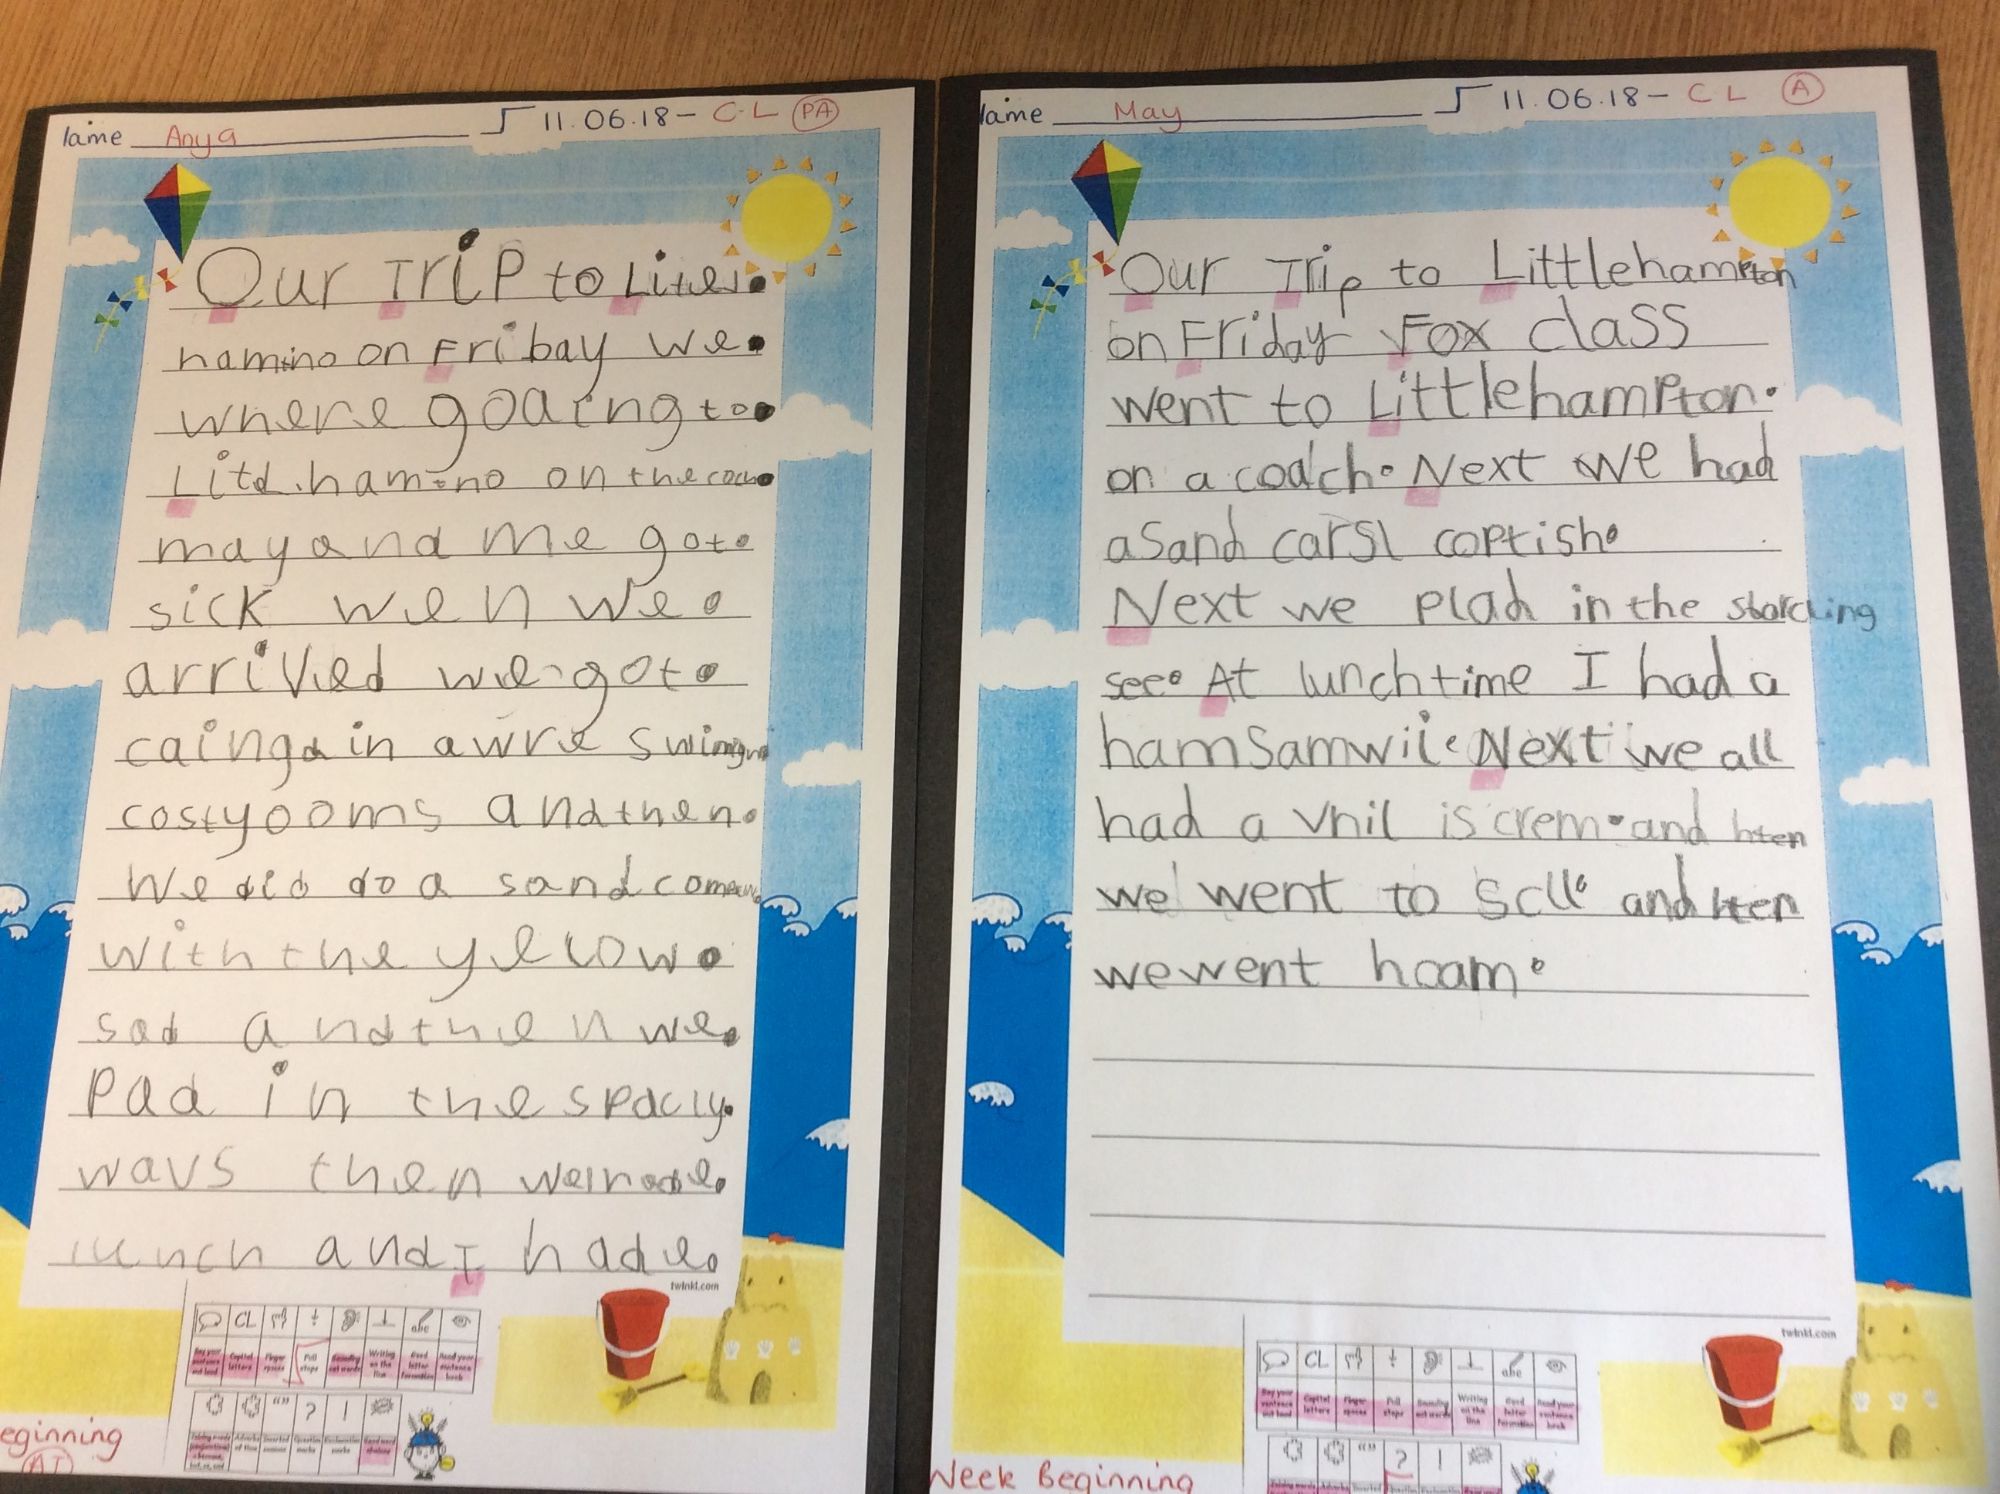 Name Anya 11.06.18 - C.L PA
Our Trip to Litel.
hamtno on Fribay we.
where goaing to.
Litd.hamtno on the coch.
may and me got.
sick wen we.
arrived we got.
caingd in awre swimgn
costyooms and then.
We did do a sand
with the yelow.
sad and then we.
Pad in the spacly.
wavs then we.
lunch and I had e.
twinkl.com
CL
abc
Say your sentence out loud
Capital letters
Finger spaces
Full stops
Sounding out words
Writing on the line
Good letter formation
Read your sentence back
“” ? !
Question marks
Exclamation marks
Good word choices
eginning
Name May 11.06.18 - CL A
Our Trip to Littlehampton
on Friday Fox class
went to Littlehampton.
on a coach. Next we had
a Sand carsl coptish.
Next we plad in the starcling
see. At lunchtime I had a
ham Samwil. Next we all
had a vnil is crem. and hten
we went to scll. and hten
we went hoam.
twinkl.com
CL
abc
Say your sentence out loud
Capital letters
Finger spaces
Full stops
Sounding out words
Writing on the line
Good letter formation
Read your sentence back
“” ? !
Week Beginning